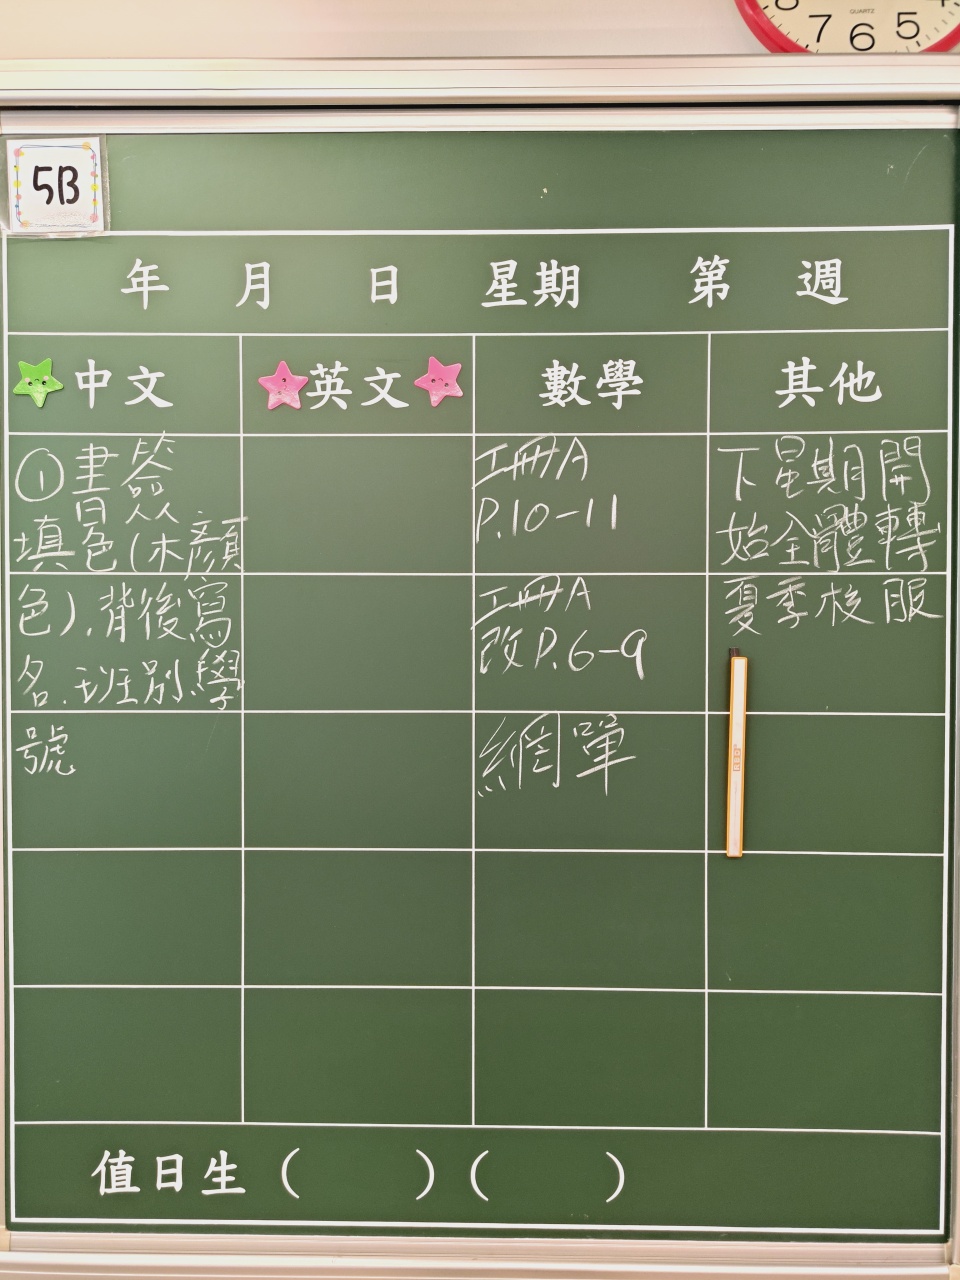 7 6 5
QUARTZ
5B
年 月 日 星期 第 週
中文 英文 數學 其他
①書簽
填色(木顏
色).背後寫
名.班別.學
號
工冊A
P.10-11
工冊A
改P.6-9
網單
下星期開
始全體轉
夏季校服
值日生 ( ) ( )